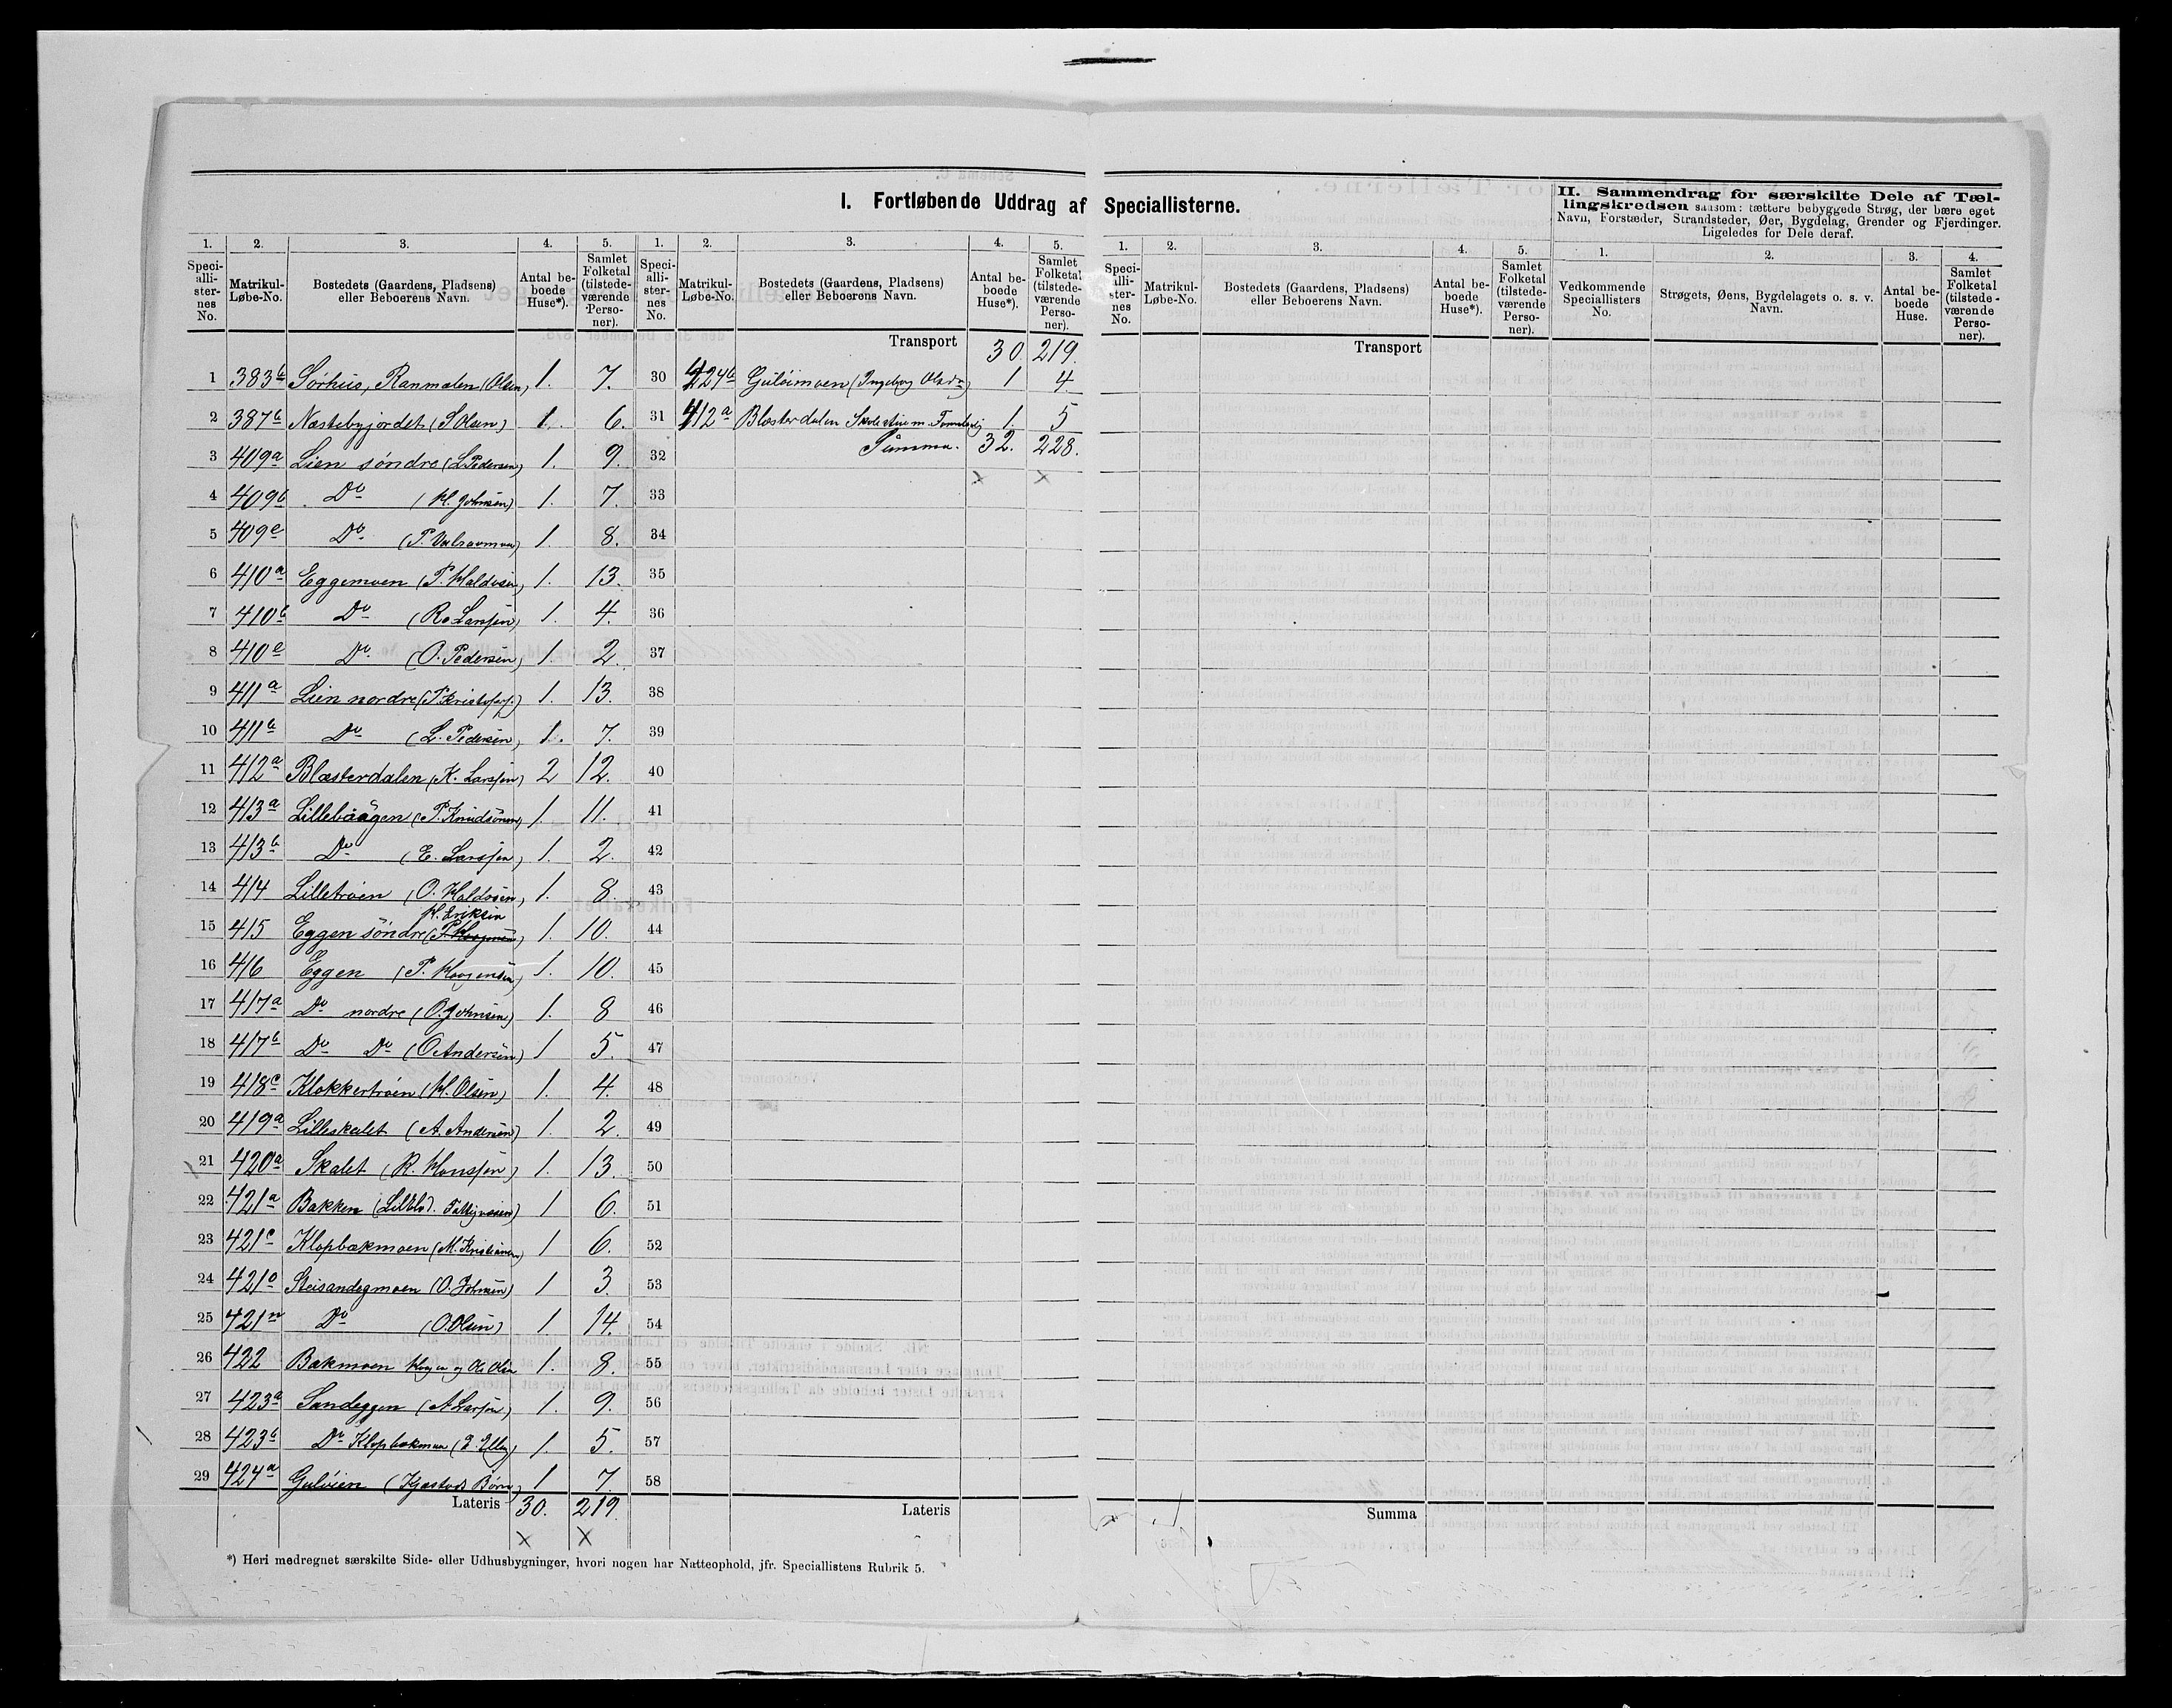 I. Fortløbende Uddrag af Speciallisterne.
II. Sammendrag for særskilte Dele af Tæl-
lingskredsen saasom: tættere bebyggede Strøg, der bære eget
Navn, Forstæder, Strandsteder, Øer, Bygdelag, Grender og Fjerdinger.
Ligeledes for Dele deraf.
1. 2. 3. 4. 5. 1. 2. 3. 4. 5. 1. 2. 3. 4. 5. 1. 2. 3. 4.
Speciallisternes No. Matrikul-Løbe-No. Bostedets (Gaardens, Pladsens) eller Beboerens Navn. Antal beboede Huse*). Samlet Folketal (tilstedeværende Personer).
Speciallisternes No. Matrikul-Løbe-No. Bostedets (Gaardens, Pladsens) eller Beboerens Navn. Antal beboede Huse*). Samlet Folketal (tilstedeværende Personer).
Speciallisternes No. Matrikul-Løbe-No. Bostedets (Gaardens, Pladsens) eller Beboerens Navn. Antal beboede Huse*). Samlet Folketal (tilstedeværende Personer).
Vedkommende Speciallisters No. Strøgets, Øens, Bygdelagets o. s. v. Navn. Antal beboede Huse. Samlet Folketal (tilstedeværende Personer).
1 383b Sørhus, Ranmalen (Olsen) 1. 7.
2 387b Næstebyjordet (S Olsen) 1. 6.
3 409a Lien søndre (L Pedersen) 1. 9.
4 409b Do (H. Johnsen) 1. 7.
5 409c Do (P. ) 1. 8.
6 410a Eggemoen (P. Haldosen) 1. 13.
7 410b Do (R. Larssen) 1. 4.
8 410c Do (O. Pedersen) 1. 2.
9 411a Lien nordre (P. Kristofers.) 1. 13.
10 411b Do (L. Pedersen) 1. 7.
11 412a Blæsterdalen (K. Larssen) 2 12.
12 413a Lillebaagen (P. Knudsønn) 1. 11.
13 413b Do (E. Larssen) 1. 2.
14 414 Lilletrøen (O. Haldosen) 1. 8.
H. Eriksen
15 415 Eggen søndre 1. 10.
16 416 Eggen (P. Haagensen) 1. 10.
17 417a Do nordre (O. Johnsen) 1. 8
18 417b Do Do (O Andersen) 1 5.
19 418c Klokkertrøen (H. Olsen) 1. 4.
20 419a Lilleskalet (A. Andersen) 1. 2.
21 420a Skalet (R. Hanssen) 1. 13.
22 421a Bakken 1 6.
23 421c Klopbækmoen (M. Kristiansen) 1 6.
24 421o (O. Johnsen) 1 3.
25 421n Do (O. Olsen) 1 14.
26 422 Bækmoen og Ole Olsen 1. 8.
27 423a Sandeggen (A Larssen) 1. 9.
28 423b Do Klopbækmoen 1. 5.
29 424a Guløien (Børn) 1 7.
Lateris 30. 219.
Transport 30. 219.
30 424b Guløimoen (Ingeborg Olsdr) 1 4.
31 412a Blæsterdalen 1. 5
32 Summa. 32. 228.
33
34
35
36
37
38
39
40
41
42
43
44
45
46
47
48
49
50
51
52
53
54
55
56
57
58
Lateris
Transport
Summa
*) Heri medregnet særskilte Side- eller Udhusbygninger, hvori nogen har Natteophold, jfr. Speciallistens Rubrik 5.